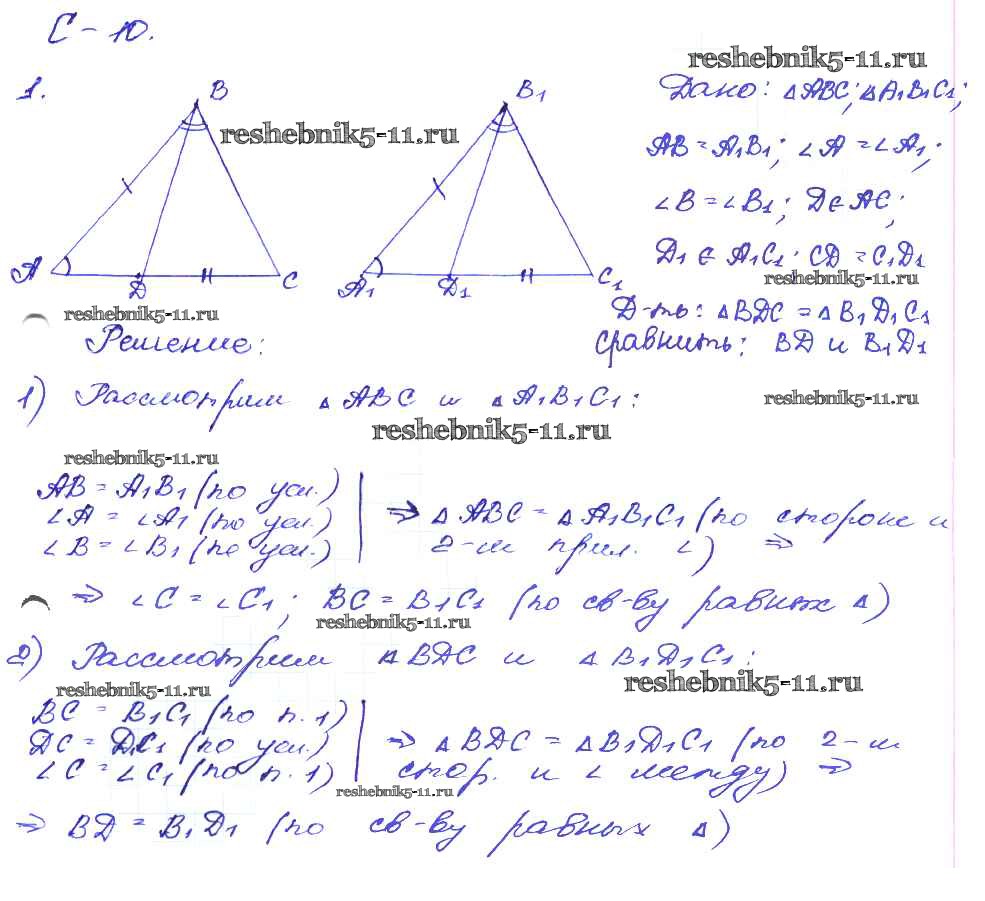 С-10.
reshebnik5-11.ru
1.
B
B1
Дано: △ABC; △A1B1C1;
reshebnik5-11.ru
AB = A1B1; ∠A = ∠A1;
∠B = ∠B1; D ∈ AC;
A
D
C
A1
D1
C1
D1 ∈ A1C1; CD = C1D1
reshebnik5-11.ru
reshebnik5-11.ru
Д-ть: △BDC = △B1D1C1
Решение:
Сравнить: BD и B1D1
1) Рассмотрим △ABC и △A1B1C1:
reshebnik5-11.ru
reshebnik5-11.ru
reshebnik5-11.ru
AB = A1B1 (по усл.)
∠A = ∠A1 (по усл.)
∠B = ∠B1 (по усл.)
⇒ △ABC = △A1B1C1 (по стороне и
2-м прил. ∠) ⇒
⇒ ∠C = ∠C1; BC = B1C1 (по св-ву равных △)
reshebnik5-11.ru
2) Рассмотрим △BDC и △B1D1C1:
reshebnik5-11.ru
reshebnik5-11.ru
BC = B1C1 (по п. 1)
DC = D1C1 (по усл.)
∠C = ∠C1 (по п. 1)
⇒ △BDC = △B1D1C1 (по 2-м
стор. и ∠ между) ⇒
reshebnik5-11.ru
⇒ BD = B1D1 (по св-ву равных △)